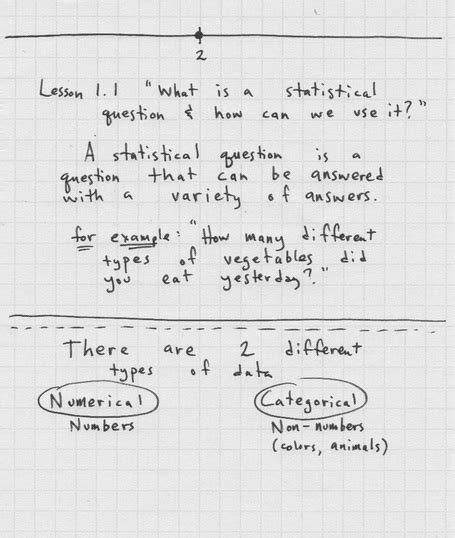 2
Lesson 1.1 "What is a statistical
question & how can we use it?"
A statistical question is a
question that can be answered
with a variety of answers.
for example: "How many different
types of vegetables did
you eat yesterday?"
There are 2 different
types of data
Numerical Categorical
Numbers Non-numbers
(colors, animals)